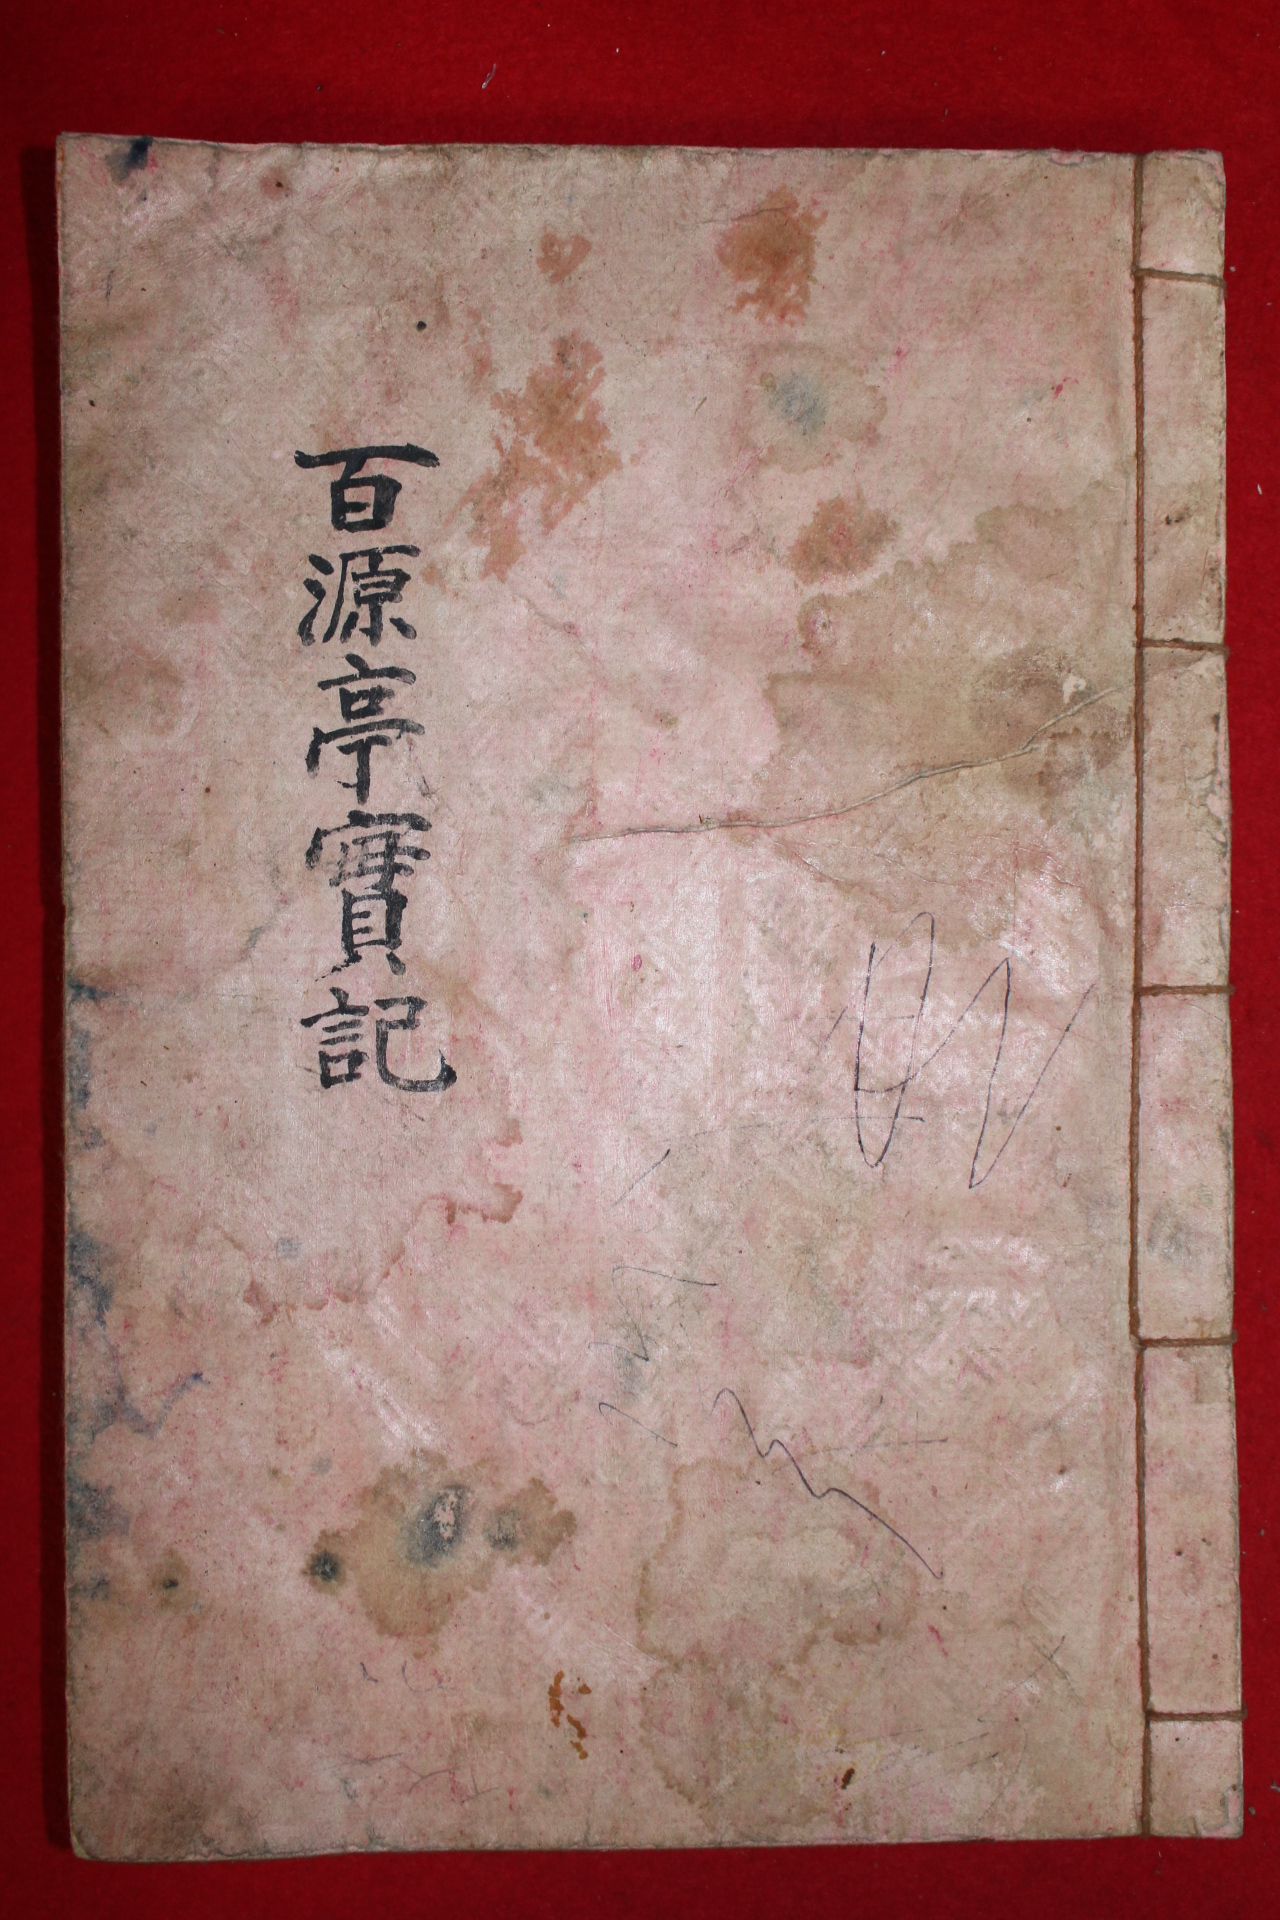 百源亭實記